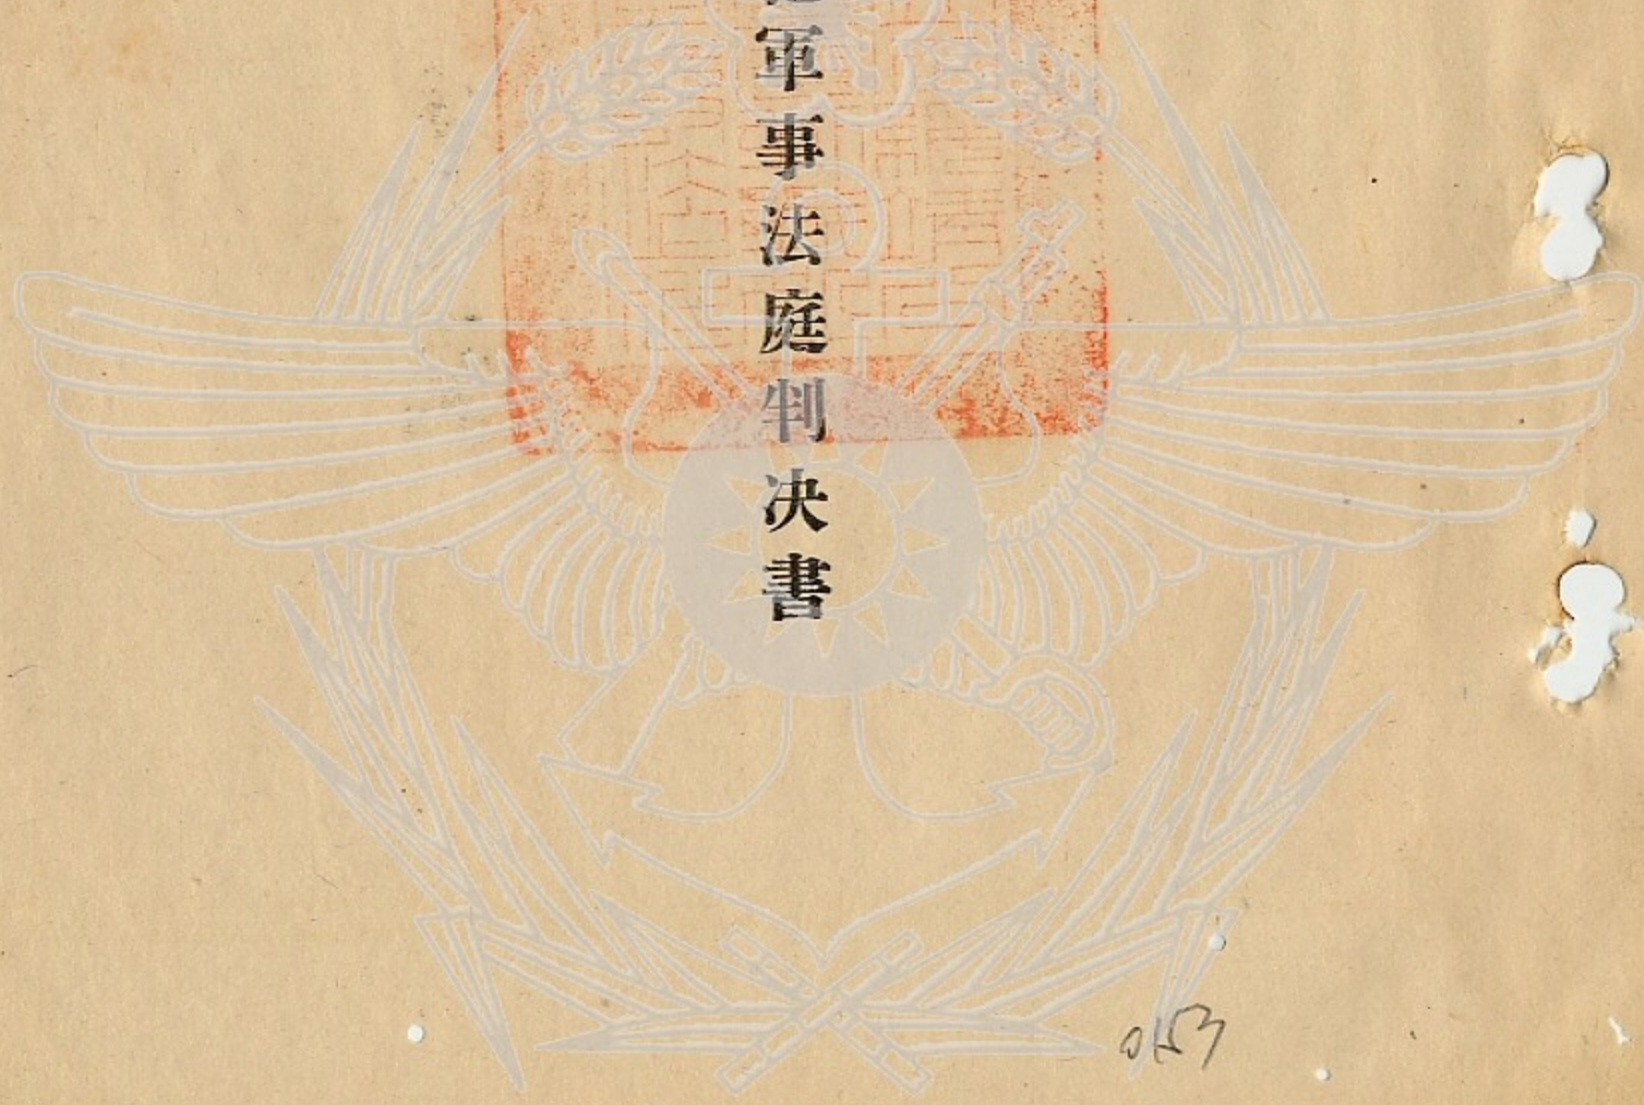 軍事法庭判決書
0153